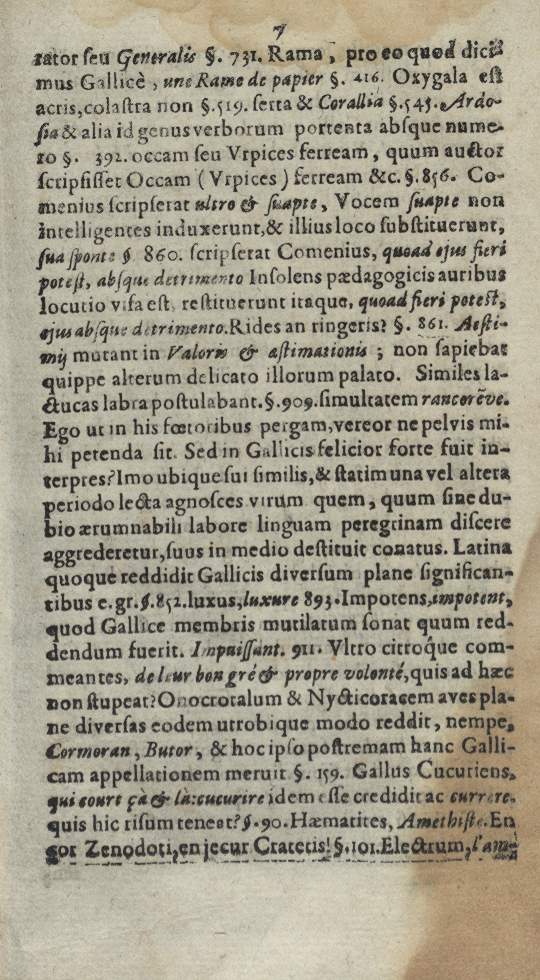 7
rator seu Generalis §. 731. Rama, pro eo quod dici-
mus Gallicè, une Rame de papier §. 416. Oxygala est
acris, colastra non §. 519. serta & Corallia §. 545. Ardo-
sia & alia id genus verborum portenta absque nume-
ro §. 392. occam seu Vrpices ferream, quum auctor
scripsisset Occam (Vrpices) ferream &c. §. 856. Co-
menius scripserat ultro & suapte, Vocem suapte non
intelligentes induxerunt, & illius loco substituerunt,
sua sponte §. 860. scripserat Comenius, quoad ejus fieri
potest, absque detrimento Insolens pædagogicis auribus
locutio visa est, restituerunt itaque, quoad fieri potest,
ejus absque detrimento. Rides an ringeris? §. 861. Aesti-
mij mutant in Valoris & æstimationis; non sapiebat
quippe alterum delicato illorum palato. Similes la-
ctucas labra postulabant. §. 909. simultatem rancorēve.
Ego ut in his fœtoribus pergam, vereor ne pelvis mi-
hi petenda sit. Sed in Gallicis felicior forte fuit in-
terpres? Imo ubique sui similis, & statim una vel altera
periodo lecta agnosces virum quem, quum sine du-
bio ærumnabili labore linguam peregrinam discere
aggrederetur, suus in medio destituit conatus. Latina
quoque reddidit Gallicis diversum plane significan-
tibus e. gr. §. 852. luxus, luxure 893. Impotens, impotent,
quod Gallice membris mutilatum sonat quum red-
dendum fuerit. Impuissant. 911. Vltro citroq́ue com-
meantes, de leur bon gré & propre volonté, quis ad hæc
non stupeat? Onocrotalum & Nycticoracem aves pla-
ne diversas eodem utrobique modo reddit, nempe,
Cormoran, Butor, & hoc ipso postremam hanc Galli-
cam appellationem meruit §. 159. Gallus Cucuriens,
qui court çà & là: cucurire idem esse credidit ac currere.
quis hic risum teneat? §. 90. Hæmatites, Amethiste. En
cor Zenodoti, en jecur Cratetis! §. 101. Electrum, l'am-